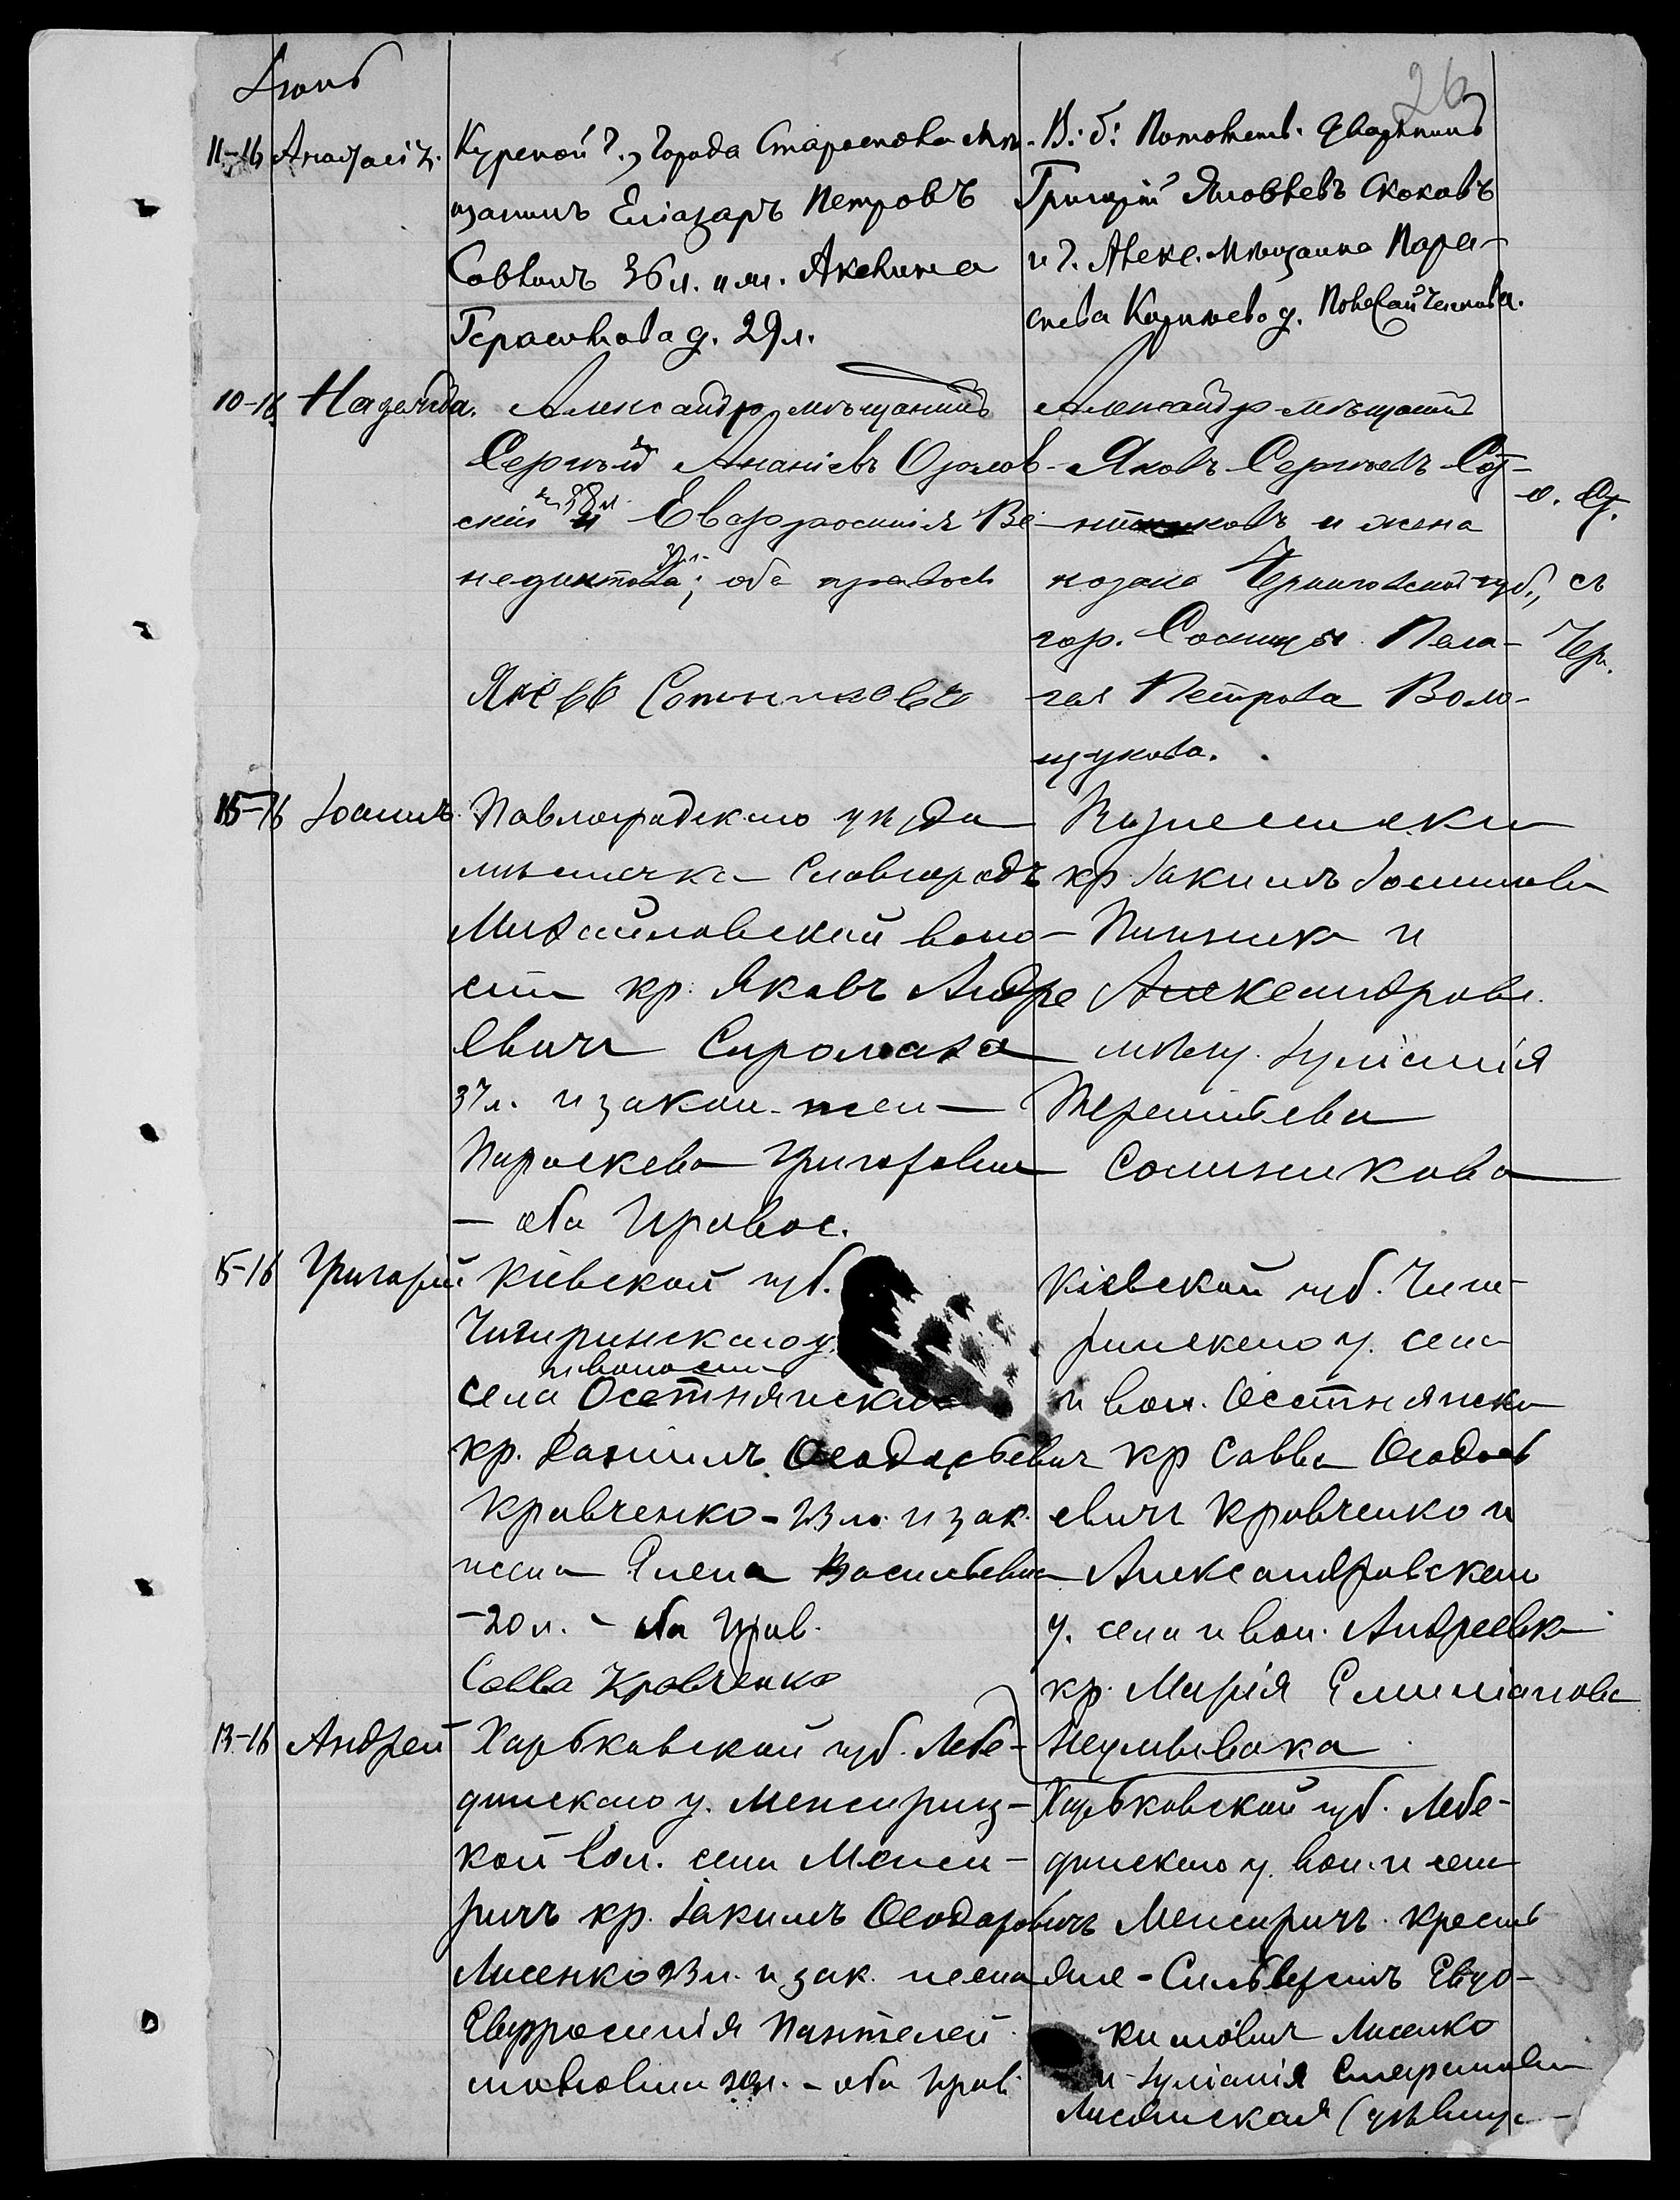 26
11-16 Анастасія.
Курской г., города Старооскола мѣ-
щанинъ Еліазаръ Петровъ
36 л. и ж. Акилина
Герасимова д. 29 л.
В: б: Потомств. Дворянинъ
Григорій Яковлевъ Скоковъ
и г. Алекс. мѣщанка Пара-
скева
10-16 Надежда.
Александр. мѣщанинъ
Сергѣй Ананіевъ Орлов-
скій 38 л. и Евфросинія Ве-
недиктова; оба правосл
Яковъ Сотниковъ
Александр. мѣщанинъ
Яковъ Сергѣевъ Сот-
никовъ и жена
козака Черниговской губ.,
гор. Сосницы Пела-
гея Петрова Воло-
щукова.
съ
Чер.
15-16 Іоаннъ
Павлоградскаго уѣзда
мѣстечка Славгородъ
Михайловской воло-
сти кр. Яковъ Андре
евичъ Сиромаха
37 л. и закон. жена
Параскева Григорьевна
— оба правос.
Вознесенки
кр. Іакимъ Іоанновъ
и
Александров.
мѣщ. Іуліанія
Терентьева
Сотникова
15-16 Григорій
Кіевской губ.
Чигиринскаго у.
и волости
села Осетняжска
кр. Даніилъ Ѳеодосьевич
Кравченко - 23 л. и зак.
жена Елена Васильевна
- 20 л. - оба прав.
Савва Кравченко
Кіевской губ. Чиги-
ринскаго у. села
и вол. Осетняжска
кр Савва Ѳеодось
евичъ Кравченко и
Александровскаго
у. села и вол. Андреевки
кр. Марія Емиліанова
Неумывака
13-16 Андрей
Харьковской губ. Лебе-
динскаго у. Межирич-
кой вол. села Межи-
ричъ кр. Іакимъ Ѳеодоровичъ
Лисенко 23 л. и зак. жена
Евфросинія Пантелей
моновна 20 л. - оба прав.
Харьковской губ. Лебе-
динскаго у. вол. и села
Межиричъ крестья
яне - Сильверстъ Евдо-
кимовичъ Лисенко
и Іуліанія